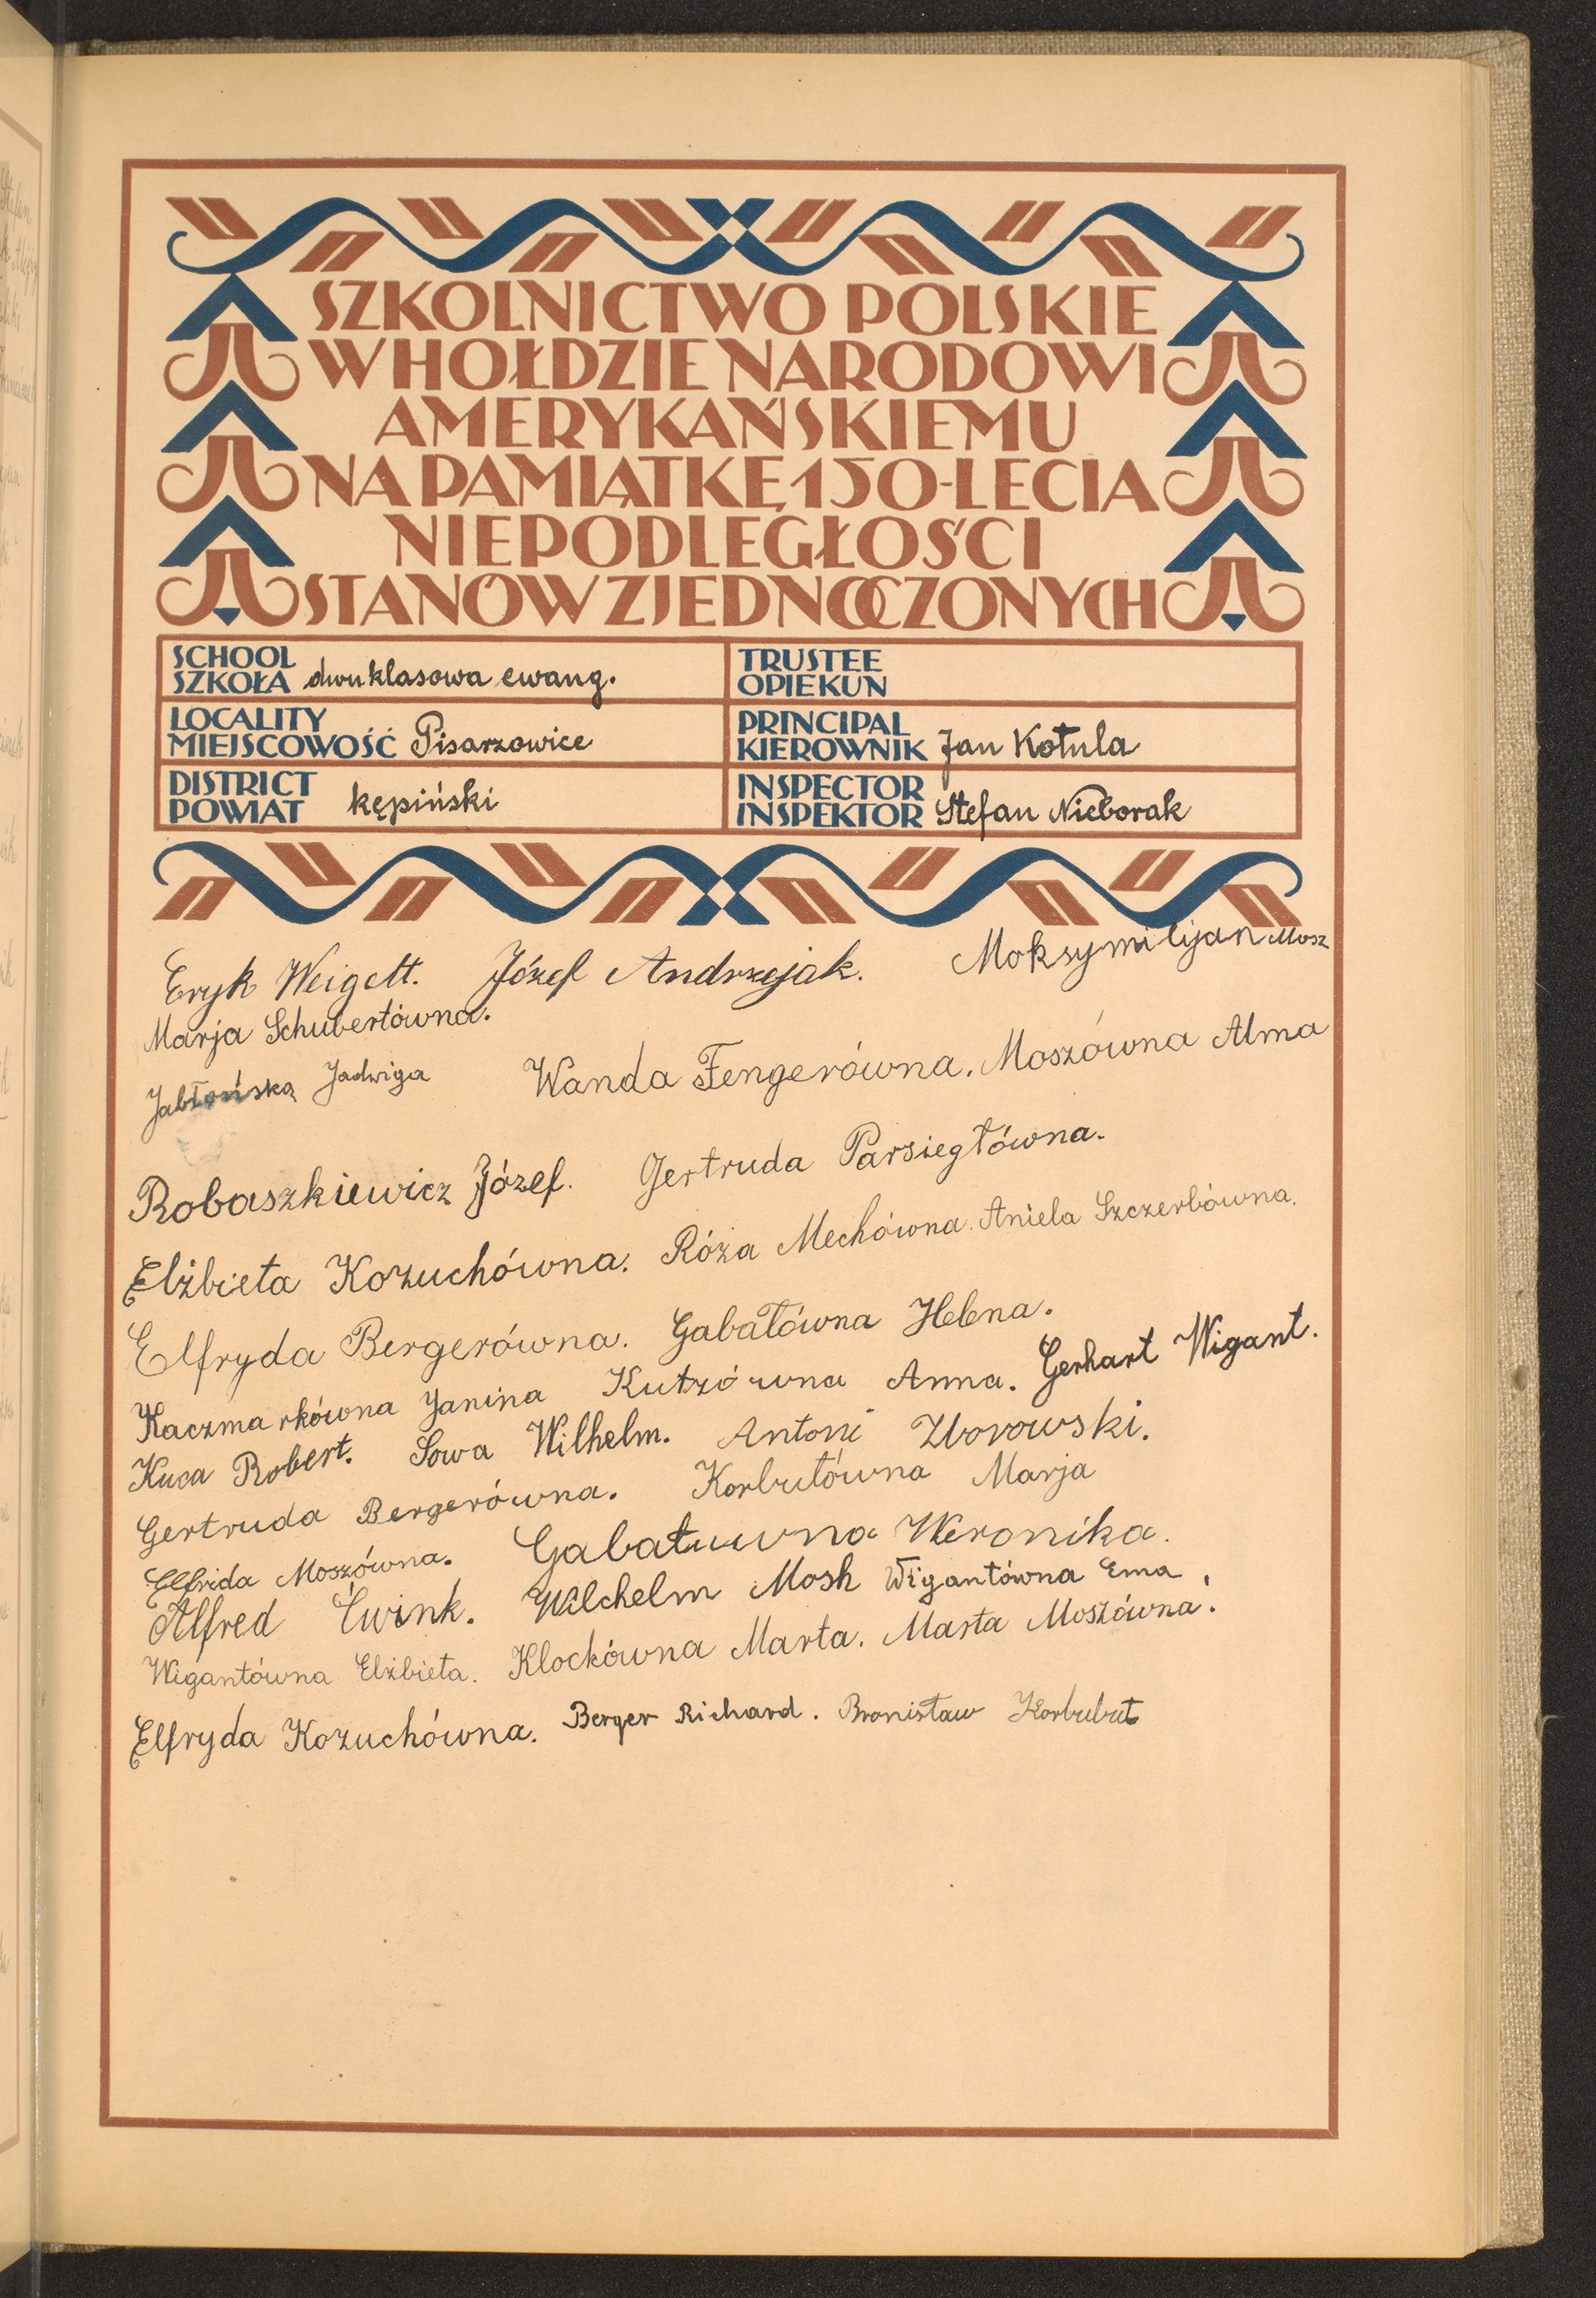 SZKOLNICTWO POLSKIE
W HOŁDZIE NARODOWI
AMERYKAŃSKIEMU
NA PAMIĄTKĘ 150-LECIA
NIEPODLEGŁOŚCI
STANÓW ZJEDNOCZONYCH
SCHOOL
SZKOŁA dwuklasowa ewang.
TRUSTEE
OPIEKUN
LOCALITY
MIEJSCOWOŚĆ Pisarzowice
PRINCIPAL
KIEROWNIK Jan Kotula
DISTRICT
POWIAT kępiński
INSPECTOR
INSPEKTOR Stefan Nieborak
Eryk Weigelt. Józef Andrzejak. Moksymilijan Mosz
Marja Schubertówna.
Jabłońska Jadwiga Wanda Fengerówna. Moszówna Alma
Robaszkiewicz Józef. Gertruda Parsiegłówna.
Elżbieta Kozuchówna. Róża Mechówna. Aniela Szczerbówna.
Elfryda Bergerówna. Gabałówna Helena.
Kaczmarkówna Janina Kutzówna Anna. Gerhart Wigant.
Kuca Robert. Sowa Wilhelm. Antoni Zborowski.
Gertruda Bergerówna. Korbutówna Marja
Elfrida Moszówna. Gabatuwna Weronika.
Alfred Ćwink. Wilchelm Mosh Wigantówna Ema.
Wigantówna Elżbieta. Klockówna Marta. Marta Moszówna.
Elfryda Kozuchówna. Berger Richard. Bronisław Korbubut